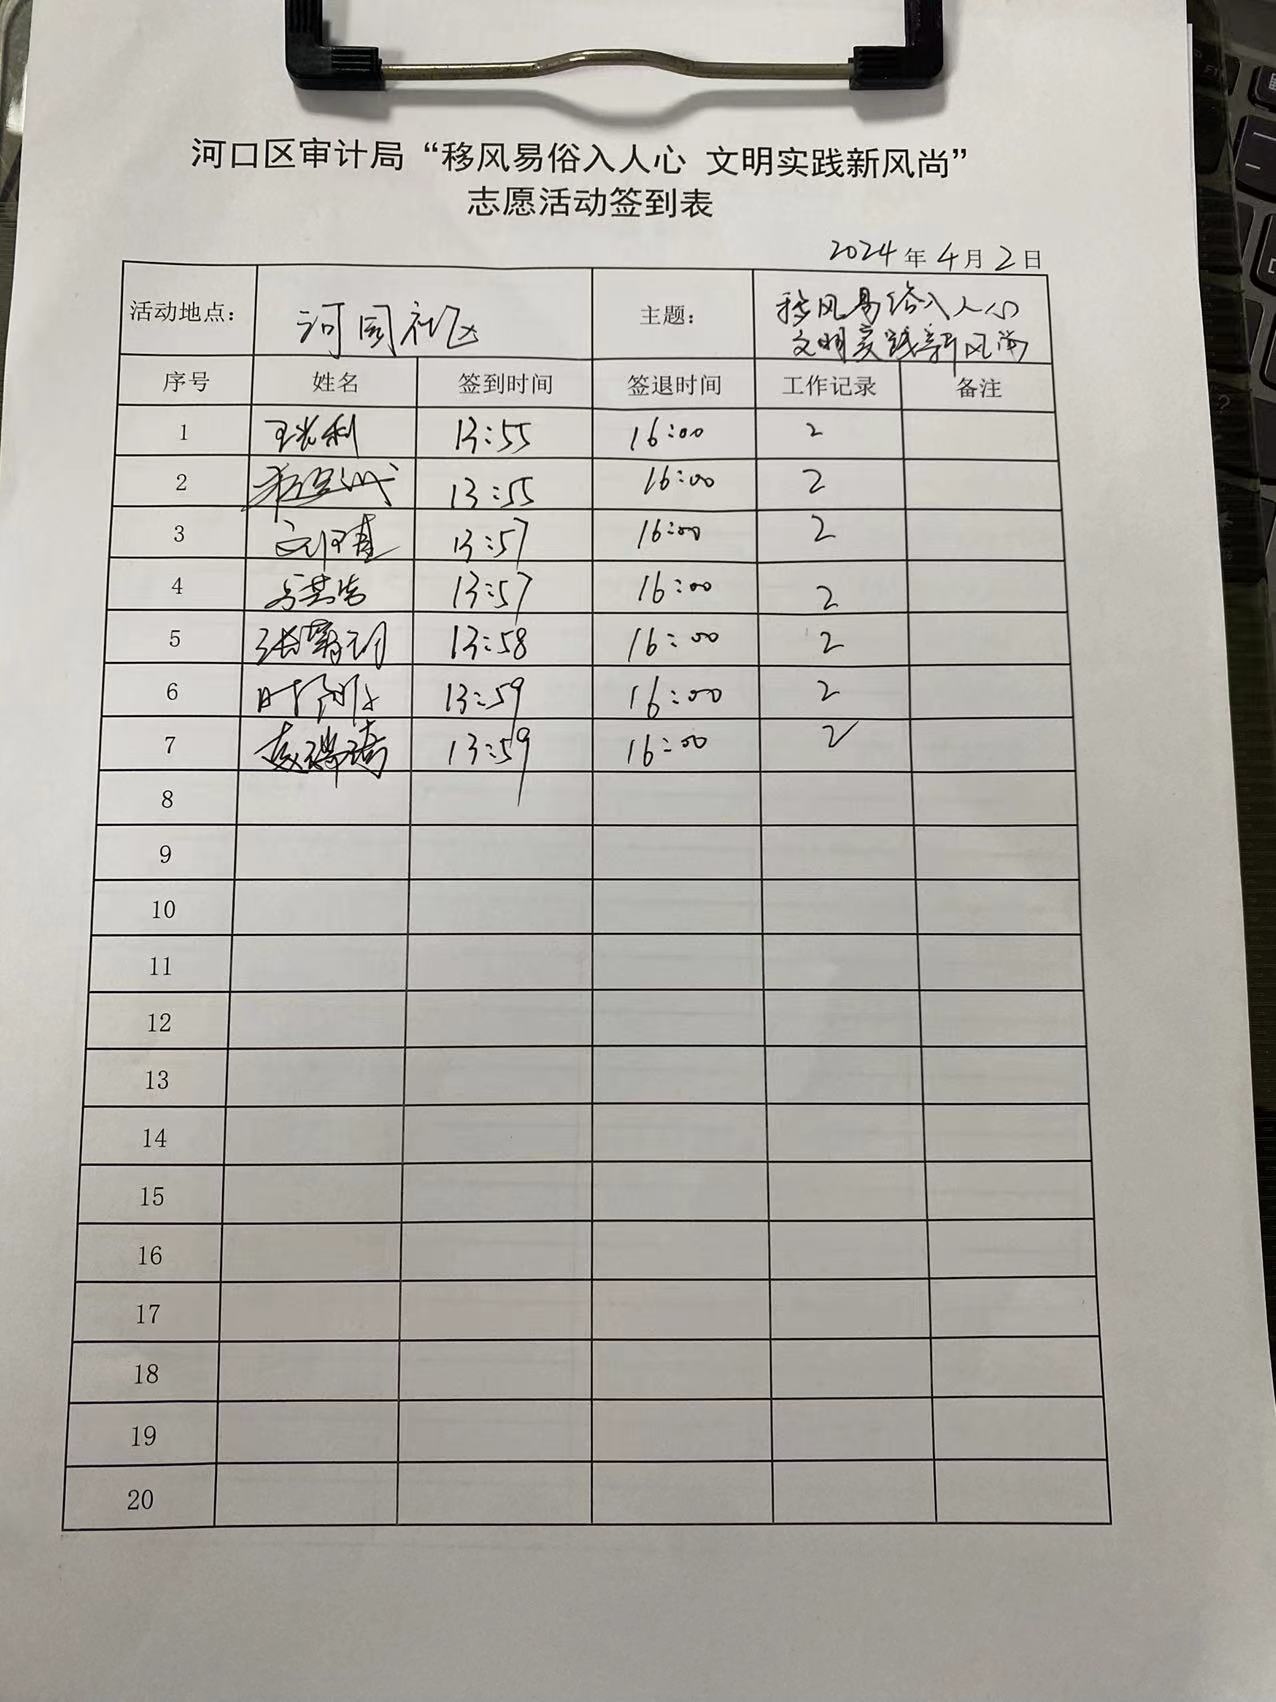 河口区审计局“移风易俗入人心 文明实践新风尚”
志愿活动签到表
2024年4月2日
活动地点： 河园社区 主题： 移风易俗入人心
文明实践新风尚
序号 姓名 签到时间 签退时间 工作记录 备注
1 13:55 16:00 2
2 13:55 16:00 2
3 13:57 16:00 2
4 13:57 16:00 2
5 13:58 16:00 2
6 13:59 16:00 2
7 13:59 16:00 2
8
9
10
11
12
13
14
15
16
17
18
19
20